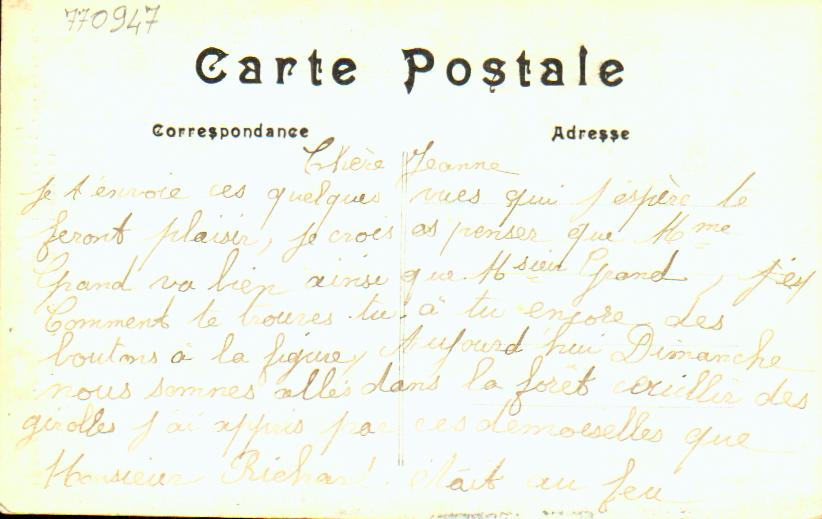 770947
Carte Postale
Correspondance Adresse
Chère Jeanne
Je t'envoie ces quelques vues qui j'espère te
feront plaisir, je crois as penser que Mme
Grand va bien ainsi que Msieur Grand,
Comment te trouves tu à tu encore des
boutons à la figure, Aujourd'hui Dimanche
nous sommes allés dans la forêt ceuillir des
girolles j'ai appris par ces demoiselles que
Monsieur Richard était au feu